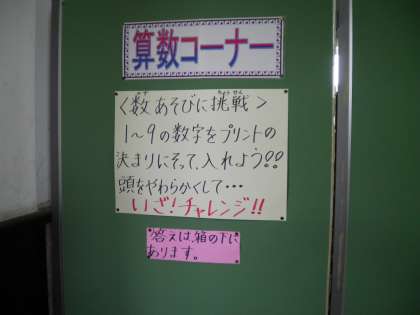 算数コーナー
<数あそびに挑戦>
1~9の数字をプリントの
決まりにそって、入れよう!!
頭をやわらかくして・・・
いざ!チャレンジ!!
答えは、箱の下に
あります。